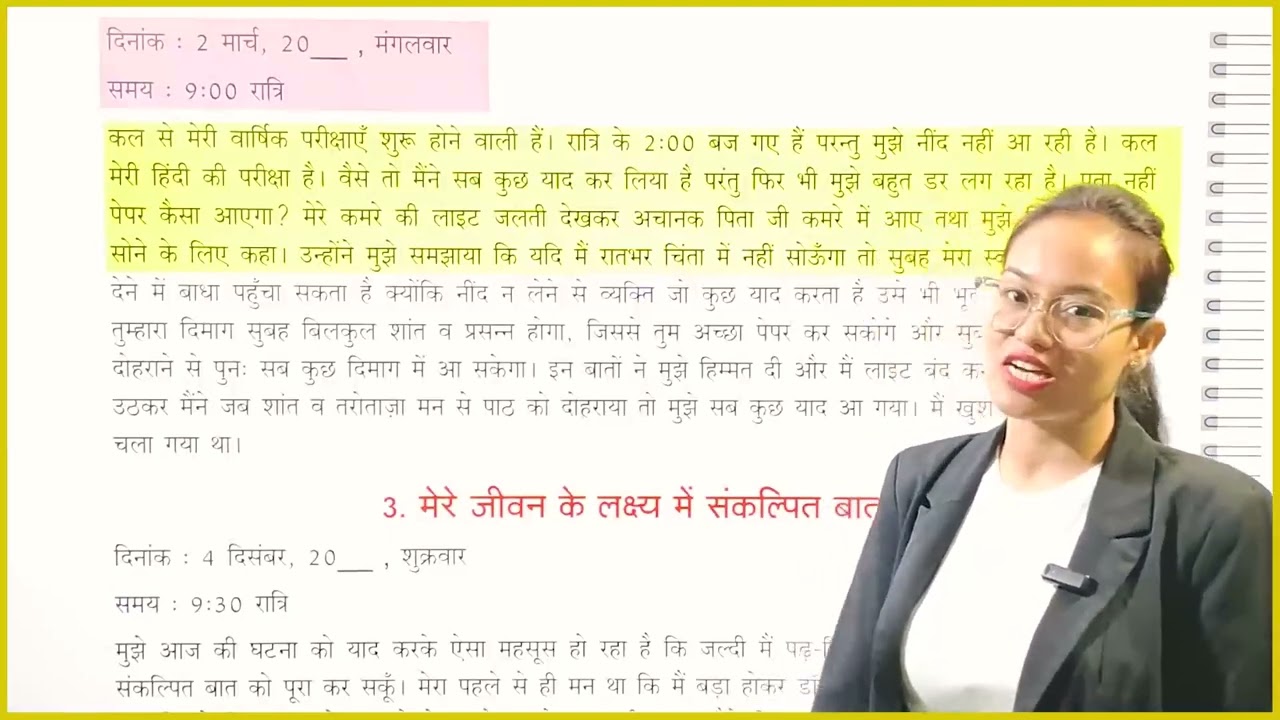 दिनांक : 2 मार्च, 20___ , मंगलवार
समय : 9:00 रात्रि
कल से मेरी वार्षिक परीक्षाएँ शुरू होने वाली हैं। रात्रि के 2:00 बज गए हैं परन्तु मुझे नींद नहीं आ रही है। कल
मेरी हिंदी की परीक्षा है। वैसे तो मैंने सब कुछ याद कर लिया है परंतु फिर भी मुझे बहुत डर लग रहा है। पता नहीं
पेपर कैसा आएगा? मेरे कमरे की लाइट जलती देखकर अचानक पिता जी कमरे में आए तथा मुझे
सोने के लिए कहा। उन्होंने मुझे समझाया कि यदि मैं रातभर चिंता में नहीं सोऊँगा तो सुबह मेरा
देने में बाधा पहुँचा सकता है क्योंकि नींद न लेने से व्यक्ति जो कुछ याद करता है उसे भी
तुम्हारा दिमाग सुबह बिलकुल शांत व प्रसन्न होगा, जिससे तुम अच्छा पेपर कर सकोगे और
दोहराने से पुनः सब कुछ दिमाग में आ सकेगा। इन बातों ने मुझे हिम्मत दी और मैं लाइट बंद
उठकर मैंने जब शांत व तरोताज़ा मन से पाठ को दोहराया तो मुझे सब कुछ याद आ गया। मैं खुश
चला गया था।
3. मेरे जीवन के लक्ष्य में संकल्पित बात
दिनांक : 4 दिसंबर, 20___ , शुक्रवार
समय : 9:30 रात्रि
मुझे आज की घटना को याद करके ऐसा महसूस हो रहा है कि जल्दी मैं
संकल्पित बात को पूरा कर सकूँ। मेरा पहले से ही मन था कि मैं बड़ा होकर